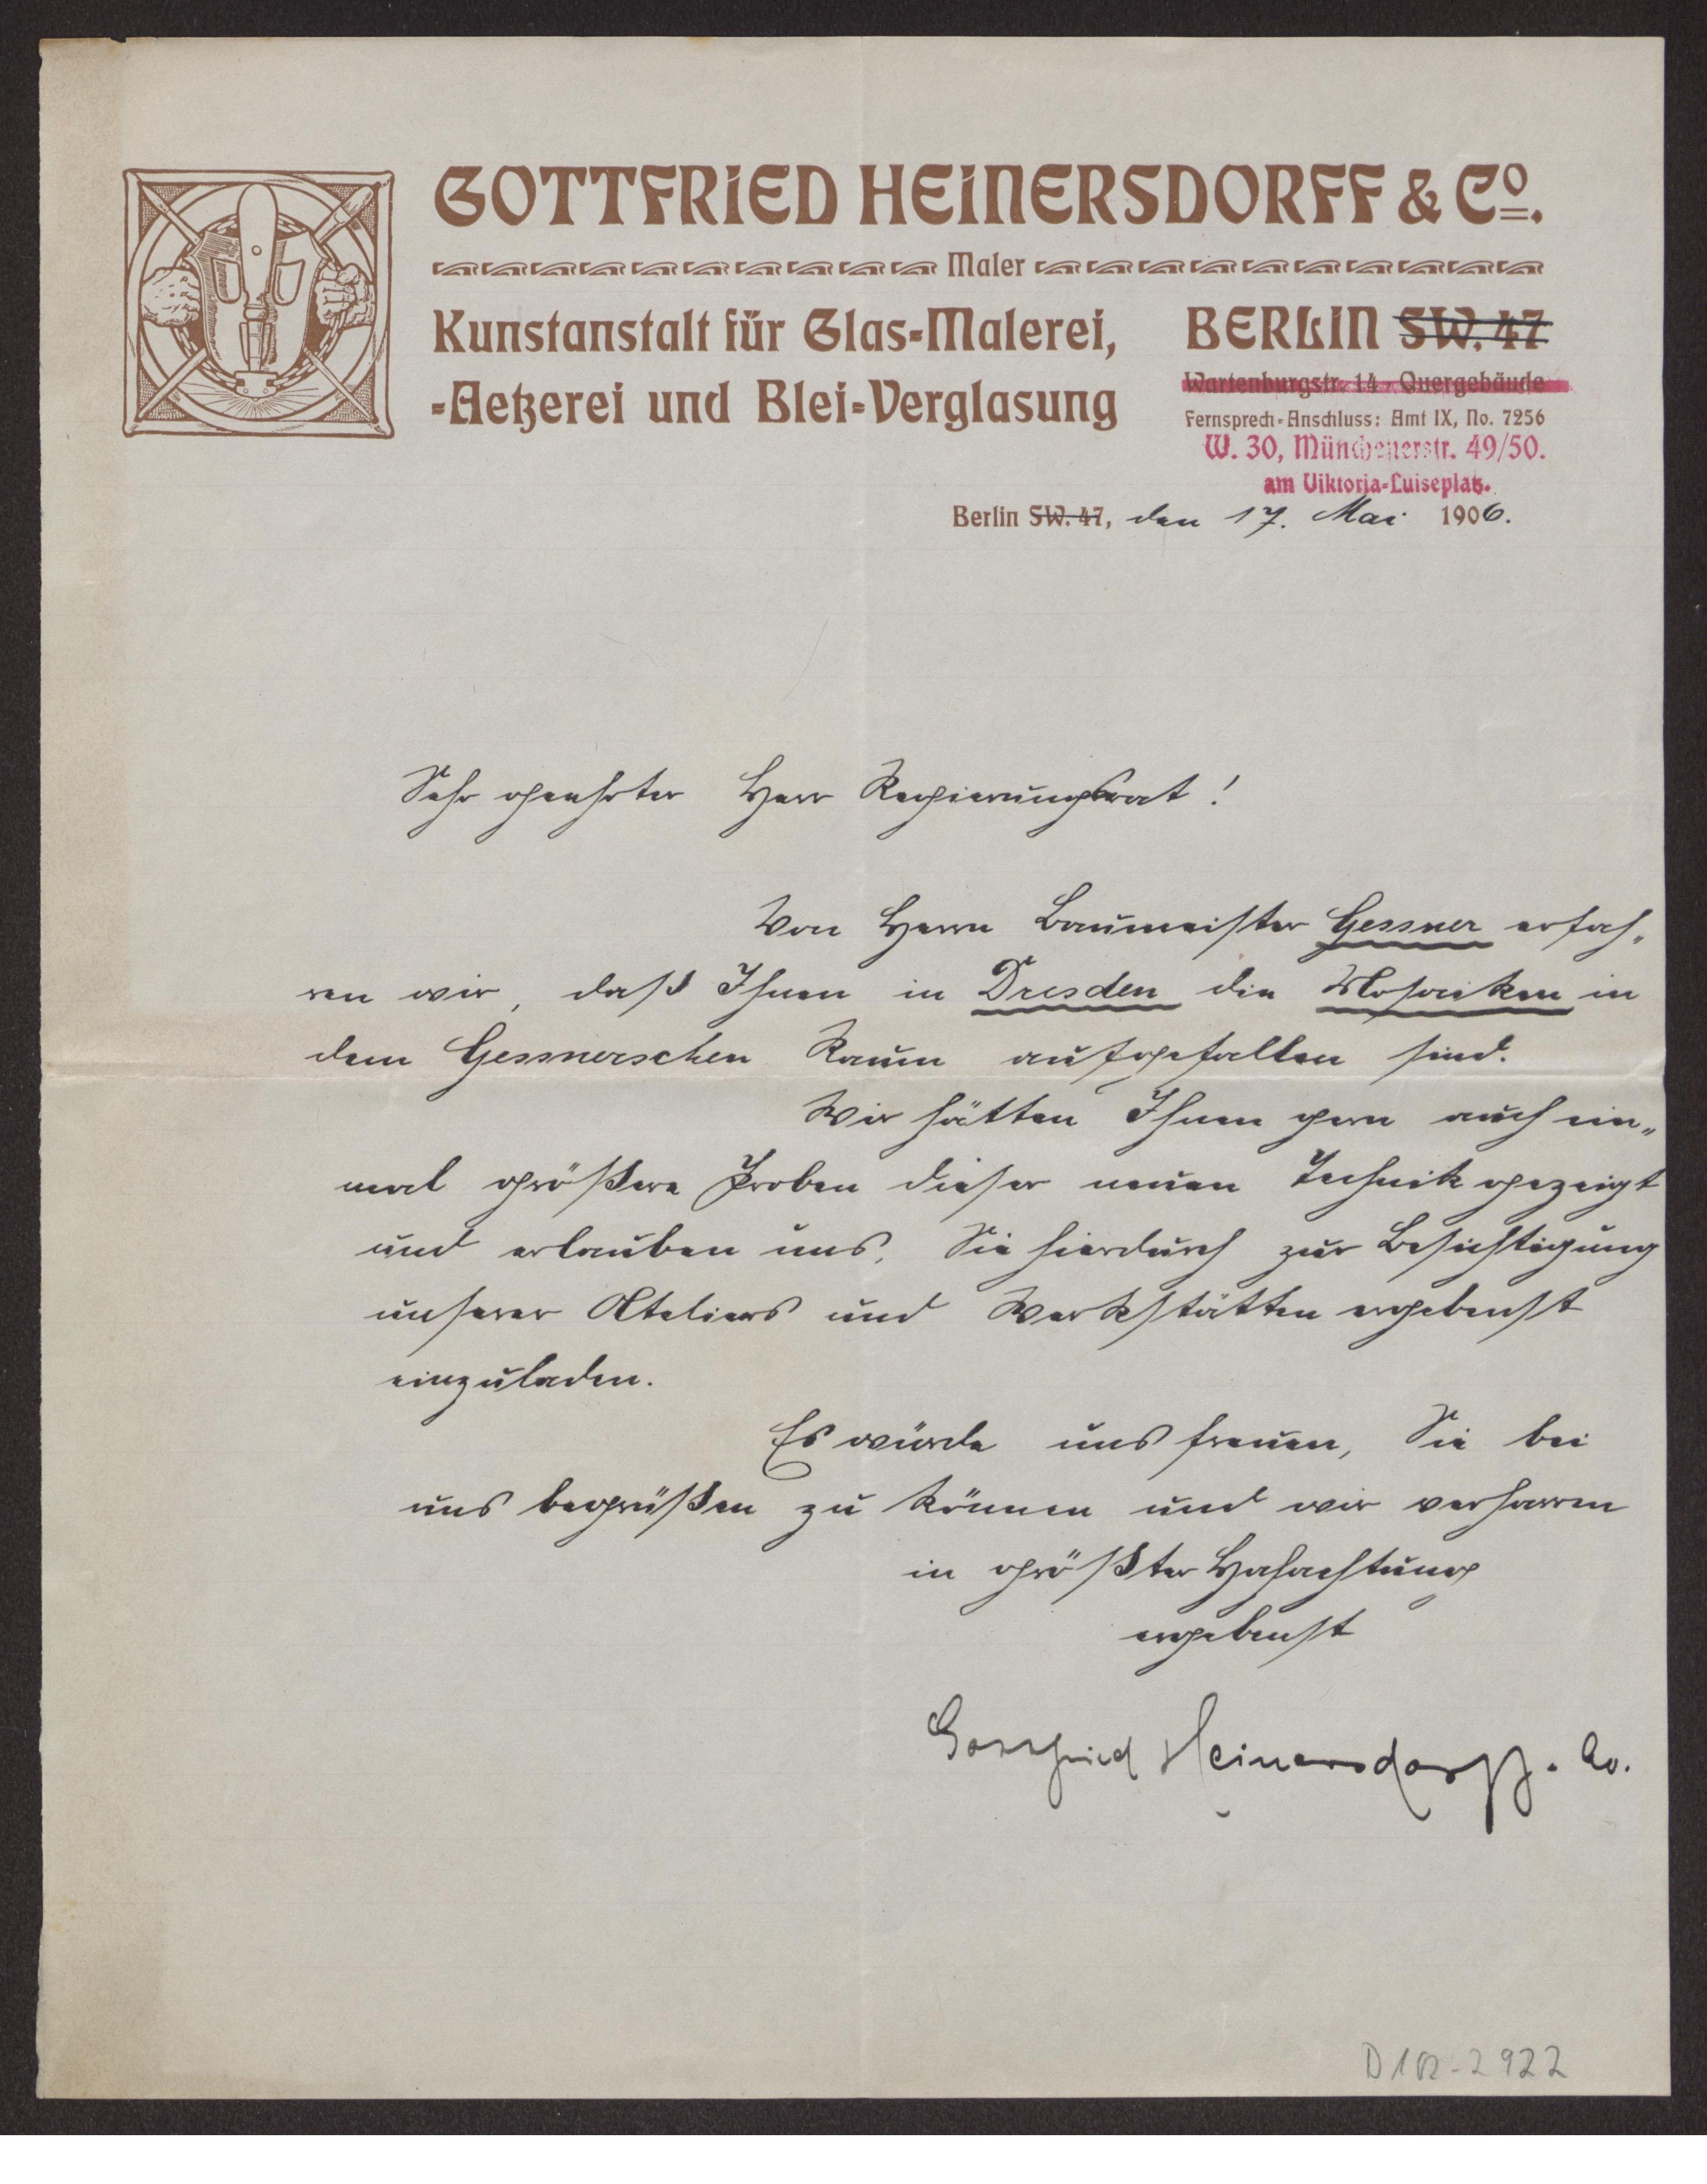 GOTTFRIED HEINERSDORFF & Co.
Maler
Kunstanstalt für Glas-Malerei,
-Aetzerei und Blei-Verglasung
BERLIN SW. 47
Wartenburgstr. 14 - Quergebäude
Fernsprech-Anschluss: Amt IX, No. 7256
W. 30, Münchenerstr. 49/50.
am Viktoria-Luiseplatz.
Berlin SW. 47, den 17. Mai 1906.
Sehr geehrter Herr Regierungsrat!
Von Herrn Baumeister Gessner erfah„
ren wir, daß Ihnen in Dresden die Mosaiken in
dem Gessnerschen Raum aufgefallen sind.
Wir hätten Ihnen gern auch ein„
mal größere Proben dieser neuen Technik gezeigt
und erlauben uns, Sie hierdurch zur Besichtigung
unserer Ateliers und Werkstätten ergebenst
einzuladen.
Es würde uns freuen, Sie bei
uns begrüßen zu können und wir verharren
in größter Hochachtung
ergebenst
Gottfried Heinersdorff. Co.
D 102-2922